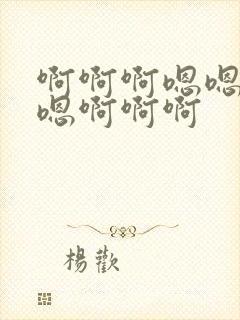 啊啊啊嗯嗯
嗯啊啊啊
楊歡